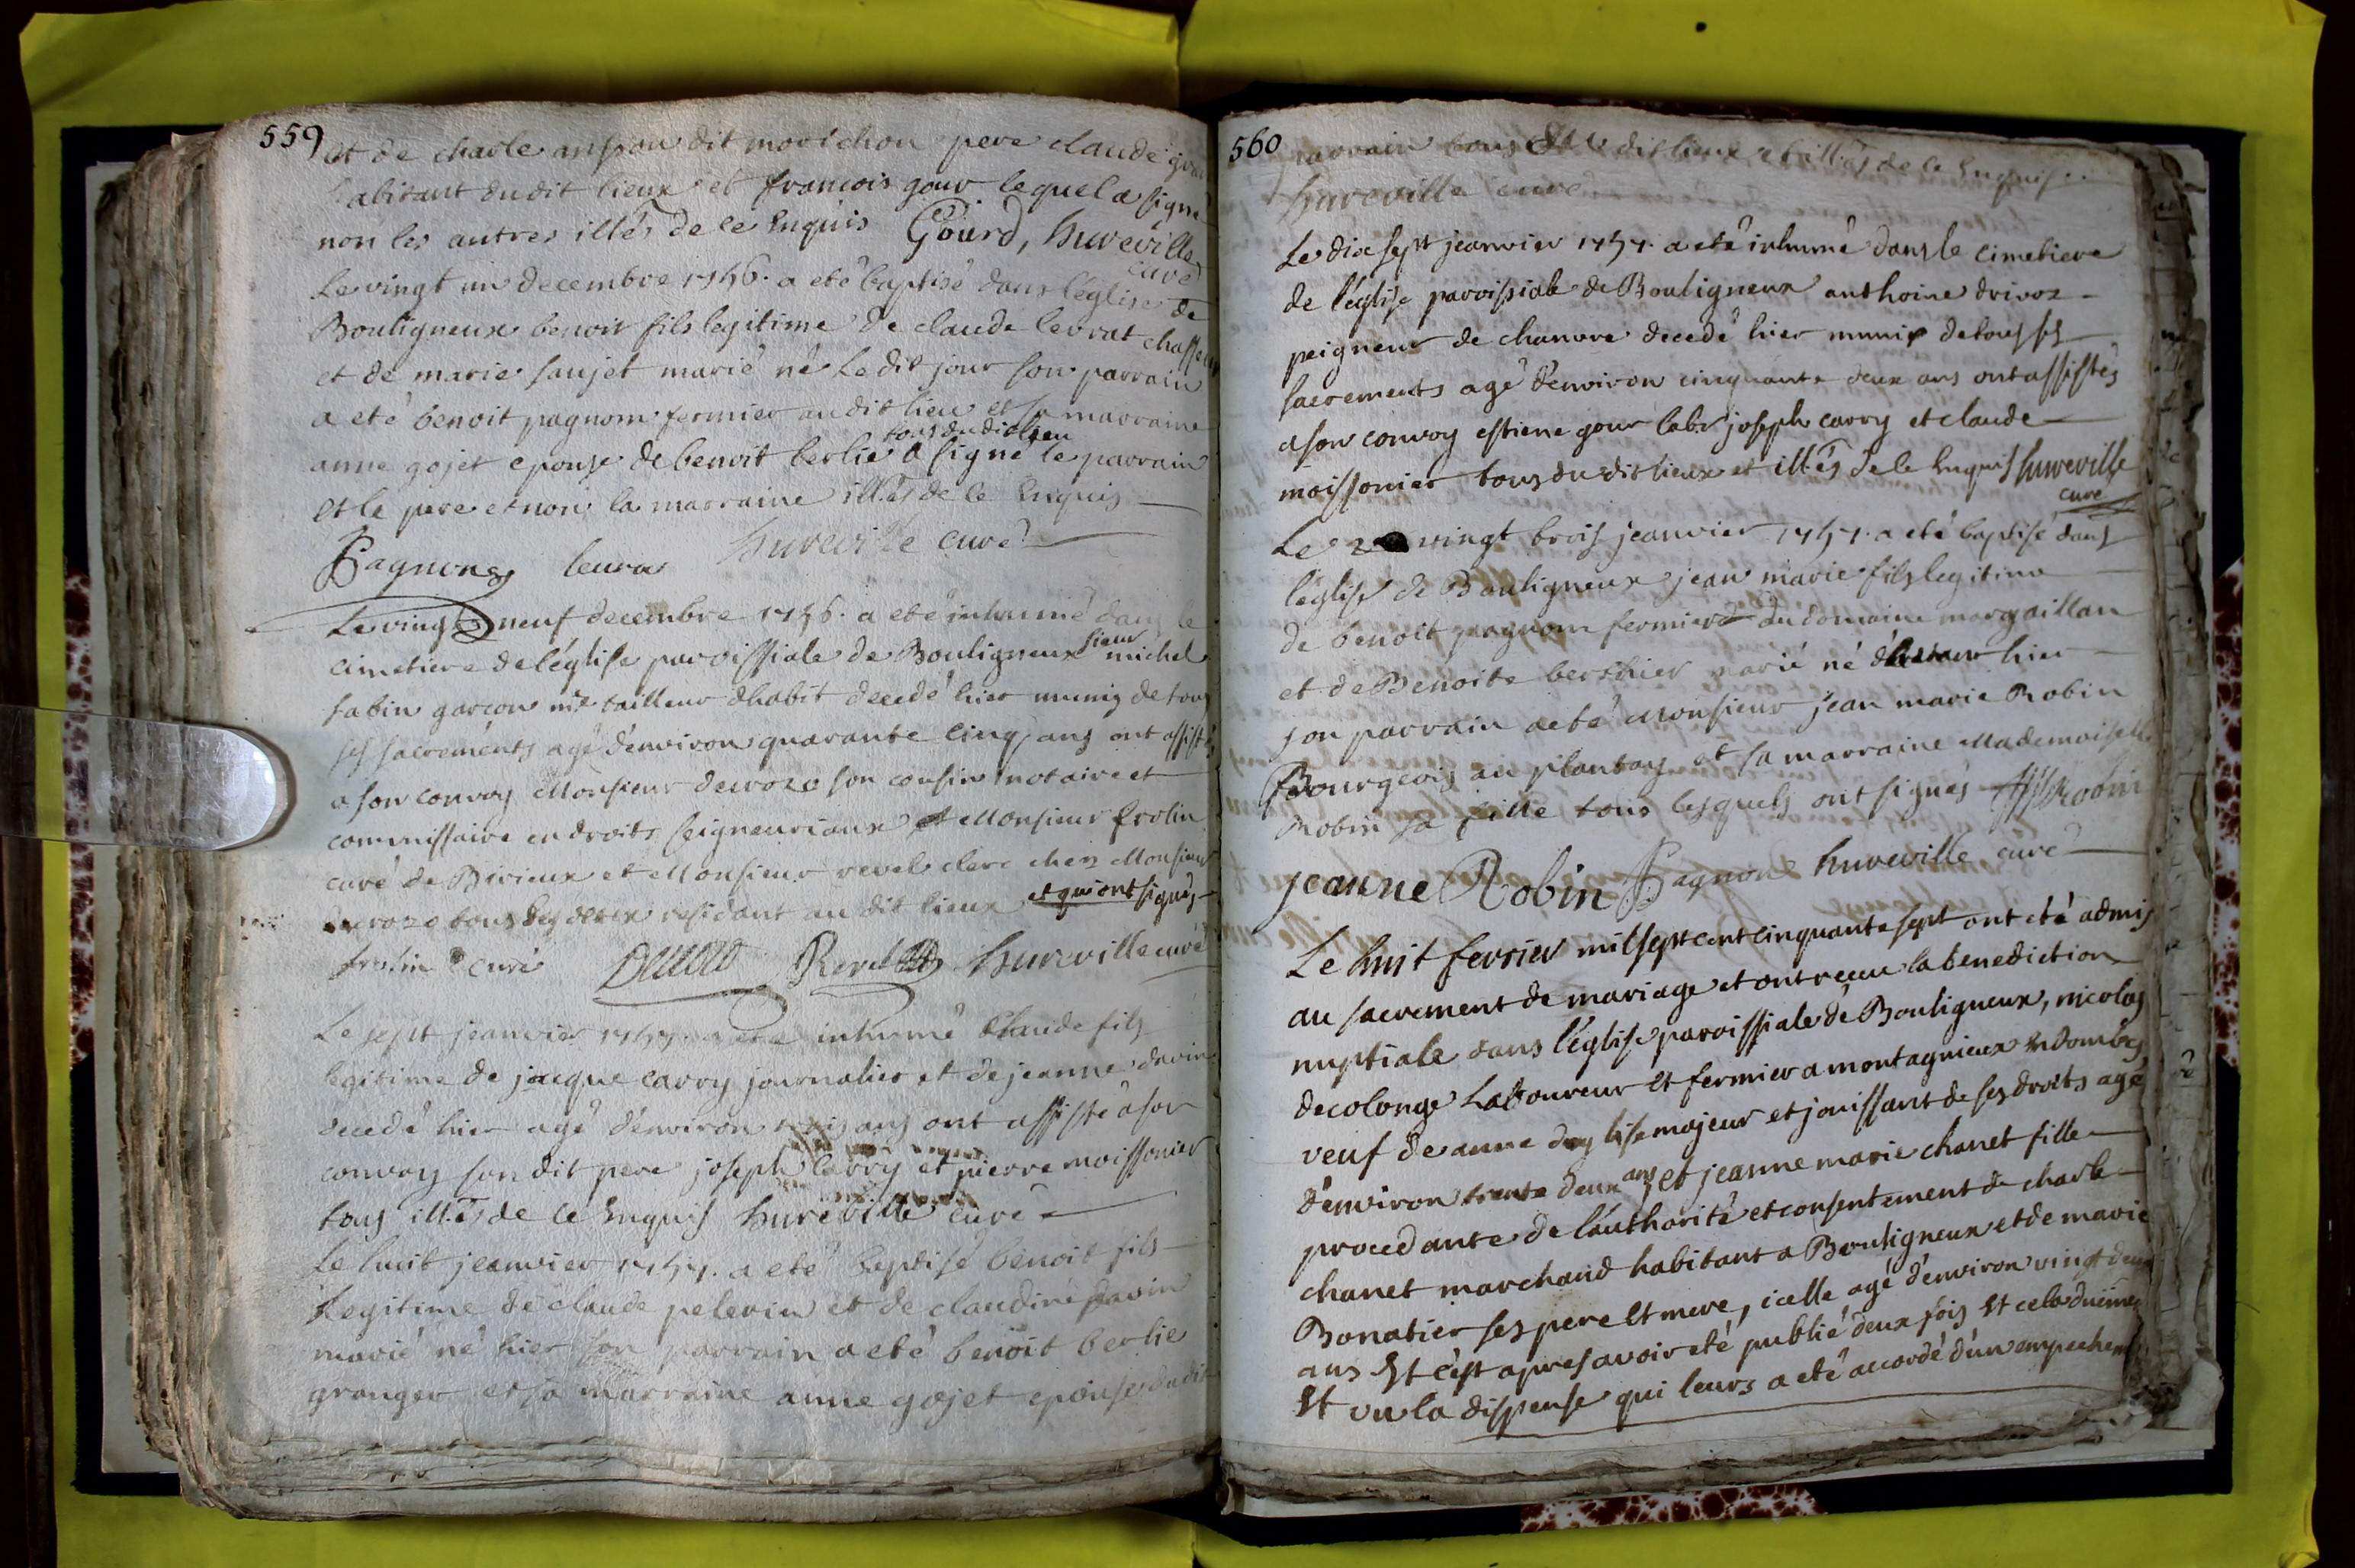 559
et de charle anson dit morichon pere claude
habitant dudit lieux et francois gour lequel a signé
non les autres illés de ce enquis Gourd, hureville
curé
Le vingt un decembre 1756. a eté baptisé dans léglise de
Bouligneux benoit fils legitime de claude levrat chasseur
et de marie saujet marié né le dit jour son parrain
a eté benoit pagnom fermier au dit lieu et sa marraine
tous du dit lieu
anne gojet epouse de benoit berlie a signé le parrain
et le pere et non la marraine illés de ce enquis
Pagnone levra hureville curé
Le vingt neuf decembre 1756. a eté inhumé dans le
cimetiere de léglise paroissiale de Bouligneux sieur michel
sabin garcon mtre tailleur dhabit decedé hier munis de tous
ses sacrements agé d'environ quarante cinq ans ont assistés
a son convoy Monsieur decroze son cousin notaire et
commissaire en droits seigneuriaux et Monsieur frolin
curé de Birieux et Monsieur revel clerc chez Monsieur
decroze tous les deux residant au dit lieux et qui ont signés
frolin curé Revel hureville curé
Le sept jeanvier 1757. a eté inhumé Claude fils
legitime de jacque carry journalier et de jeanne davin
decedé hier agé d'environ trois ans ont assisté a son
convoy son dit pere joseph carry et pierre moissonier
tous illés de ce enquis hureville curé
Le huit jeanvier 1757. a eté baptisé benoit fils
legitime de claude pelerin et de claudine davin
marié né hier son parrain a eté benoit berlie
granger et sa marraine anne gojet epouse dudit
560
parrain tous du dit lieux et illés de ce enquis
hureville curé
Le dix sept jeanvier 1757. a eté inhumé dans le cimetiere
de léglise paroissiale de Bouligneux anthoine drivoz
peigneur de chanvre decedé hier munis de tous ses
sacrements agé d'environ cinquante deux ans ont assistés
a son convoy estiene gour labr joseph carry et claude
moissonier tous du dit lieux et illés de ce enquis hureville
curé
Le vingt trois jeanvier 1757. a eté baptisé dans
léglise de Bouligneux jean marie fils legitime
de benoit pagnom fermier du domaine margaillan
et de Benoite berthier marié né hier
son parrain a eté Monsieur jean marie Robin
Bourgeois au plantay et sa marraine Mademoiselle
Robin sa fille tous lesquels ont signés Robin
jeanne Robin Pagnone hureville curé
Le huit ferrier mil sept cent cinquante sept ont eté admis
au sacrement de mariage et ont receu la benediction
nuptiale dans léglise paroissiale de Bouligneux, nicolas
decolonge Laboureur et fermier a montagnieux en dombes
veuf de anne duglise majeur et jouissant de ses droits agé
d'environ trente deux ans et jeanne marie chanet fille
procedante de lauthorité et consentement de charle
chanet marchand habitant a Bouligneux et de marie
Bonatier ses pere et mere, icelle agé d'environ vingt deux
ans Et cest apres avoir eté publié deux fois Et cela dueiment
Et vu la dispense qui leurs a eté accordé d'un empechem